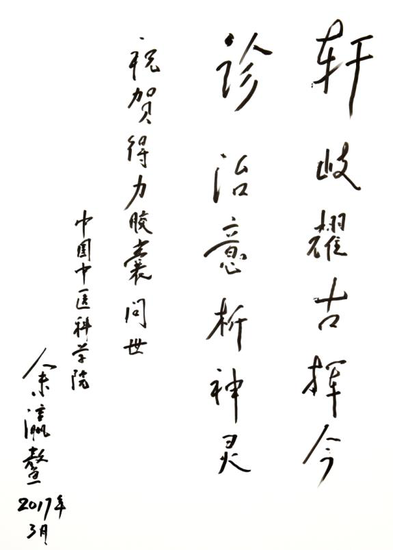 轩岐耀古挥今
诊治意析神灵
祝贺得力胶囊问世
中国中医科学院
余瀛鳌
2017年
3月